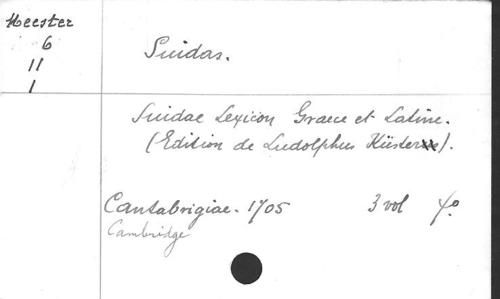 Meester
6
11
1
Suidas.
Suidae Lexicon Graece et Latine.
(Edition de Ludolphus Küster).
Cantabrigiae. 1705 3 vol 4°
Cambridge